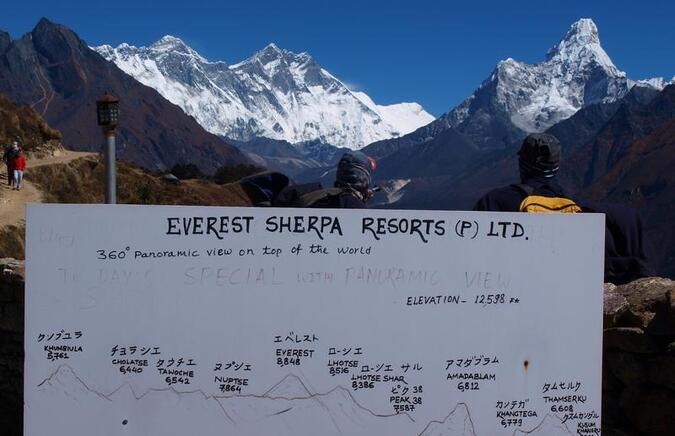 EVEREST SHERPA RESORTS (P) LTD.
360° panoramic view on top of the world
TO DAY'S SPECIAL with PANORAMIC VIEW
ELEVATION - 12,598 Ft
クンブユラ
KHUMBIULA
5,761
チョラシエ
CHOLATSE
6,440
タウチェ
TAWOCHE
6542
ヌプシェ
NUPTSE
7864
エベレスト
EVEREST
8848
ローシエ
LHOTSE
8516
ローシエ サル
LHOTSE SHAR
8386
ピク 38
PEAK 38
7587
アマダブラム
AMADABLAM
6812
カンテガ
KHANGTEGA
6,779
タムセルク
THAMSERKU
6,608
クスムカングル
KUSUM
KHANGRU